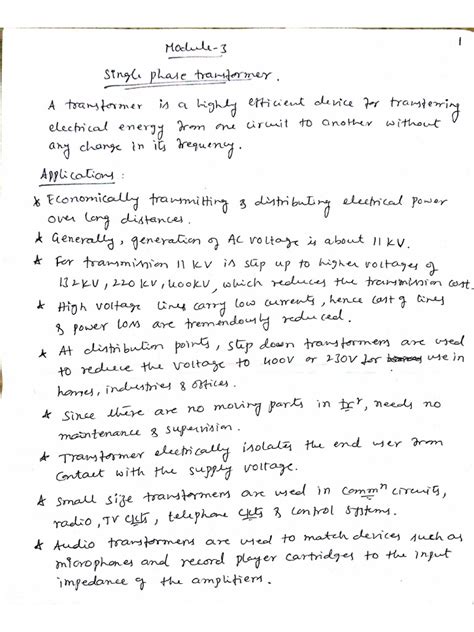 1
Module-3
Single phase transformer.
A transformer is a highly efficient device for transferring
electrical energy from one circuit to another without
any change in its frequency.
Applications :
* Economically transmitting & distributing electrical power
over long distances.
* Generally, generation of AC voltage is about 11 KV.
* For transmission 11 KV is step up to higher voltages of
132KV, 220 KV, 400KV, which reduces the transmission cost.
* High voltage lines carry low currents, hence cost of lines
& power loss are tremendously reduced.
* At distribution points, step down transformers are used
to reduce the voltage to 400V or 230V for use in
homes, industries & offices.
* Since there are no moving parts in tr^r, needs no
maintenance & supervision.
* Transformer electrically isolates the end user from
contact with the supply voltage.
* Small size transformers are used in comm^n circuits,
radio, TV ckts, telephone ckts & control systems.
* Audio transformers are used to match devices such as
microphones and record player cartridges to the input
impedance of the amplifiers.